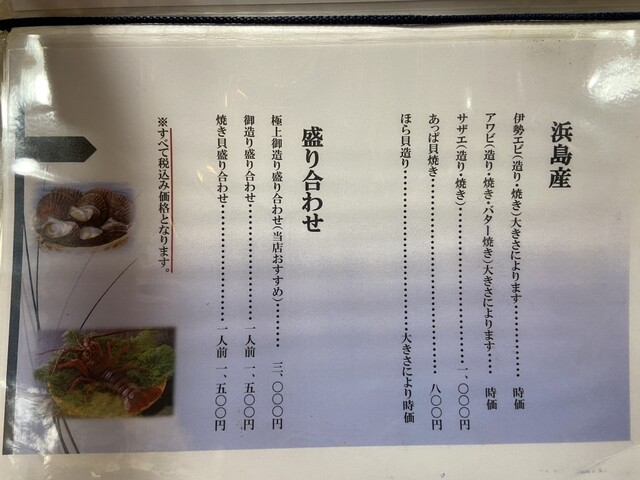 浜島産
伊勢エビ(造り・焼き)大きさによります…………… 時価
アワビ(造り・焼き・バター焼き)大きさによります…… 時価
サザエ(造り・焼き)………………………… 一、〇〇〇円
あっぱ貝焼き……………………………… 八〇〇円
ほら貝造り………………………… 大きさにより時価
盛り合わせ
極上御造り盛り合わせ(当店おすすめ)……… 三、〇〇〇円
御造り盛り合わせ…………………… 一人前 一、五〇〇円
焼き貝盛り合わせ…………………… 一人前 一、五〇〇円
※すべて税込み価格となります。